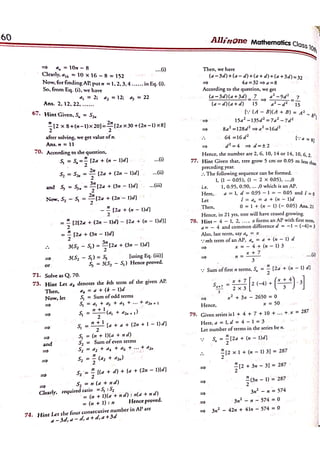 60
All in one Mathematics Class 10th
⇒ aₙ = 10n − 8 ...(i)
Clearly, a₁₆ = 10 × 16 − 8 = 152
Now, for finding AP, put n = 1, 2, 3, 4 ...... in Eq. (i),
So, from Eq. (i), we have
a₁ = 2; a₂ = 12; a₃ = 22
Ans. 2, 12, 22, ......
67. Hint Given, Sₙ = S₂ₙ
after solving, we get value of n
Ans. n = 11
70. According to the question,
S₁ = Sₙ = n/2 [2a + (n − 1)d] ...(i)
S₂ = S₂ₙ = 2n/2 [2a + (2n − 1)d] ...(ii)
and S₃ = S₃ₙ = 3n/2 [2a + (3n − 1)d] ...(iii)
Now, S₂ − S₁ = 2n/2 [2a + (2n − 1)d]
− n/2 [2a + (n − 1)d]
= n/2 [2{2a + (2n − 1)d} − {2a + (n − 1)d}]
= n/2 [2a + (3n − 1)d]
∴ 3(S₂ − S₁) = 3n/2 [2a + (3n − 1)d]
⇒ 3(S₂ − S₁) = S₃ [using Eq. (iii)]
or S₃ = 3(S₂ − S₁) Hence proved.
71. Solve as Q. 70.
73. Hint Let aₖ denotes the kth term of the given AP.
Then, aₖ = a + (k − 1)d
Now, let S₁ = Sum of odd terms
⇒ S₁ = a₁ + a₃ + a₅ + ... + a₂ₙ₊₁
⇒ S₁ = (n + 1)/2 (a₁ + a₂ₙ₊₁)
⇒ S₁ = (n + 1)/2 [a + a + (2n + 1 − 1)d]
⇒ S₁ = (n + 1)(a + nd)
and S₂ = Sum of even terms
⇒ S₂ = a₂ + a₄ + a₆ + ... + a₂ₙ
⇒ S₂ = n/2 (a₂ + a₂ₙ)
⇒ S₂ = n/2 [(a + d) + {a + (2n − 1)d}]
⇒ S₂ = n (a + nd)
Clearly, required ratio = S₁ : S₂
= (n + 1)(a + nd) : n(a + nd)
= (n + 1) : n Hence proved.
74. Hint Let the four consecutive number in AP are
a − 3d, a − d, a + d, a + 3d
Then, we have
(a − 3d) + (a − d) + (a + d) + (a + 3d) = 32
⇒ 4a = 32 ⇒ a = 8
According to the question, we get
(a − 3d)(a + 3d)/(a − d)(a + d) = 7/15 ⇒ (a² − 9d²)/(a² − d²) = 7/15
[∵ (A − B)(A + B) = A² − B²]
⇒ 15a² − 135d² = 7a² − 7d²
⇒ 8a² = 128d² ⇒ a² = 16d²
∴ 64 = 16d² [∵ a = 8]
⇒ d² = 4 ⇒ d = ± 2
Hence, the number are 2, 6, 10, 14 or 14, 10, 6, 2.
77. Hint Given that, tree grow 5 cm or 0.05 m less than
preceding year.
∴ The following sequence can be formed.
1, (1 − 0.05), (1 − 2 × 0.05), ...,0
i.e. 1, 0.95, 0.90, ..., 0 which is an AP.
Here, a = 1, d = 0.95 − 1 = − 0.05 and l = 0
Let l = aₙ = a + (n − 1)d
Then, 0 = 1 + (n − 1) (− 0.05) Ans. 21
Hence, in 21 yrs, tree will have ceased growing.
78. Hint − 4, − 1, 2, ..., x forms an AP with first term,
a = − 4 and common difference d = −1 − (−4) = 3
Also, last term, say aₙ = x
∵ nth term of an AP, aₙ = a + (n − 1) d
⇒ x = − 4 + (n − 1) 3
⇒ n = (x + 7)/3 ...(i)
∵ Sum of first n terms, Sₙ = n/2 [2a + (n − 1) d]
⇒ x² + 3x − 2650 = 0
Hence, x = 50
79. Given series is 1 + 4 + 7 + 10 + ... + x = 287
Here, a = 1, d = 4 − 1 = 3
Let number of terms in the series be n.
∵ Sₙ = n/2 [2a + (n − 1)d]
∴ n/2 [2 × 1 + (n − 1) 3] = 287
⇒ n/2 [2 + 3n − 3] = 287
⇒ n/2 (3n − 1) = 287
⇒ 3n² − n = 574
⇒ 3n² − n − 574 = 0
⇒ 3n² − 42n + 41n − 574 = 0